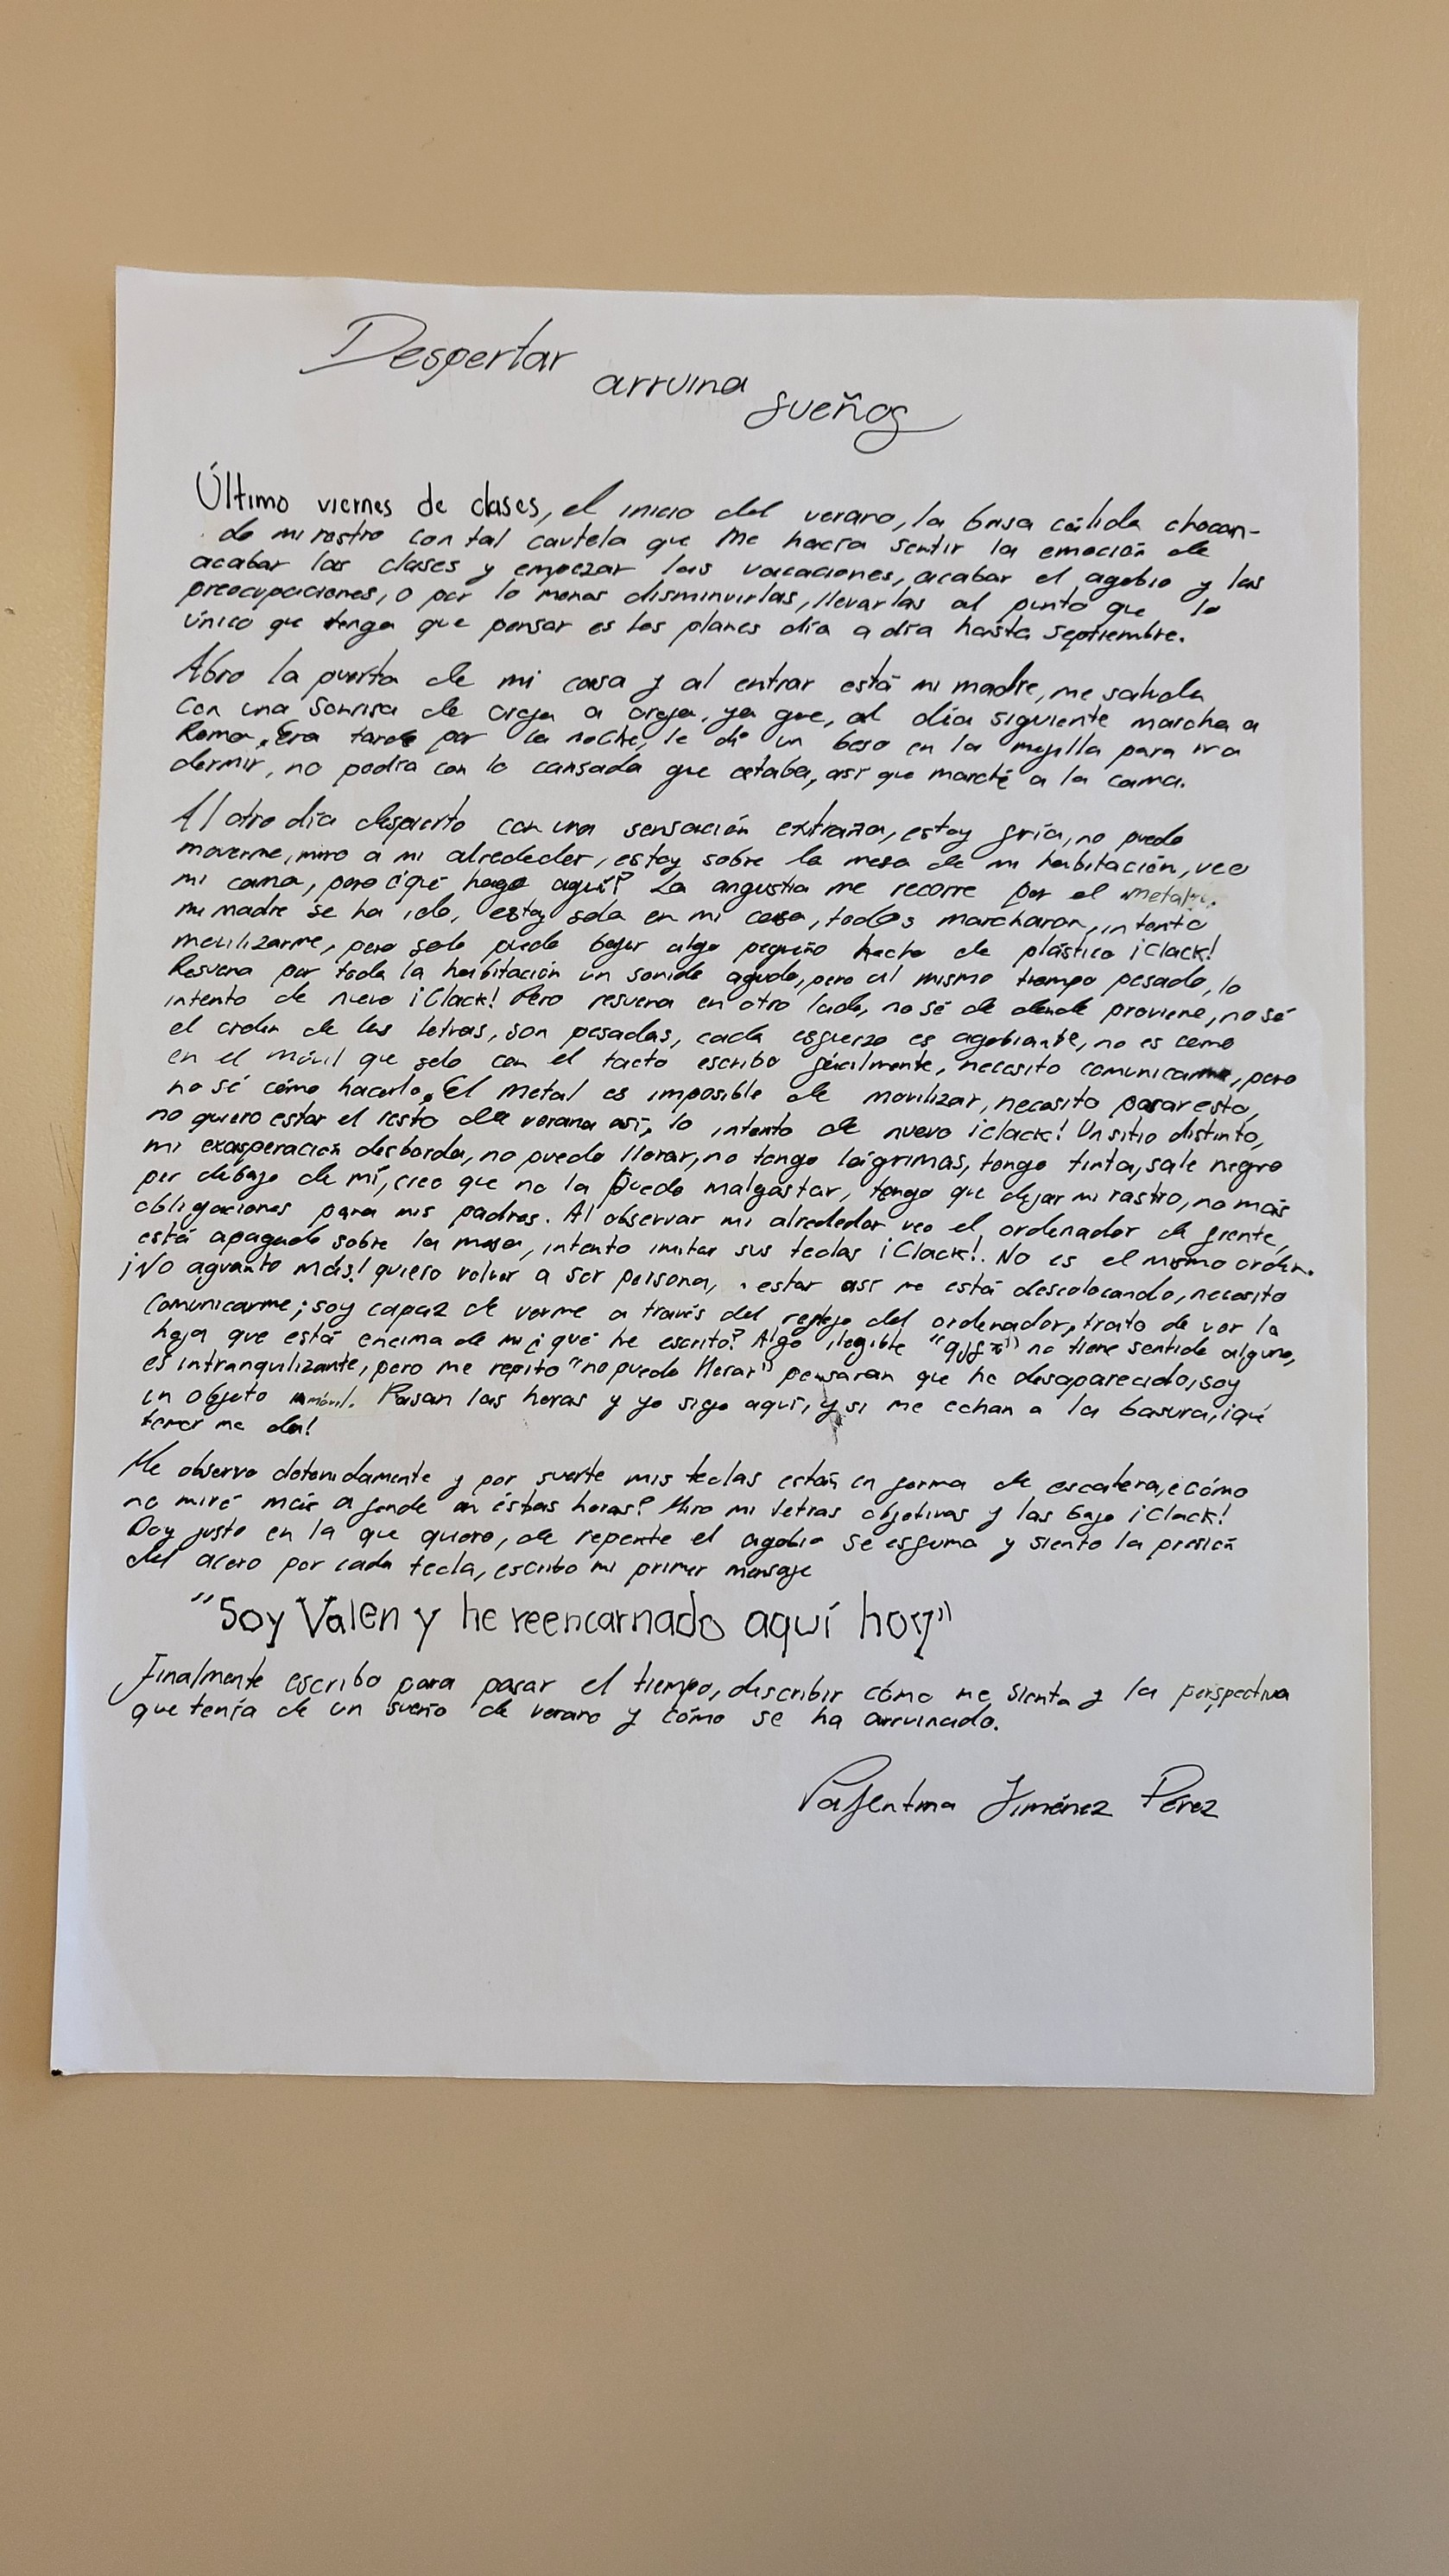 Despertar
arruina
sueños
Último viernes de clases, el inicio del verano, la brisa cálida chocan-
do mi rostro con tal cautela que me hacía sentir la emoción de
acabar las clases y empezar las vacaciones, acabar el agobio y las
preocupaciones, o por lo menos disminuirlas, llevarlas al punto que lo
único que tenga que pensar es los planes día a día hasta septiembre.
Abro la puerta de mi casa y al entrar está mi madre, me saluda
con una sonrisa de oreja a oreja, ya que, al día siguiente marcha a
Roma. Era tarde por la noche, le di un beso en la mejilla para ir a
dormir, no podía con lo cansada que estaba, así que marché a la cama.
Al otro día despierto con una sensación extraña, estoy fría, no puedo
moverme, miro a mi alrededor, estoy sobre la mesa de mi habitación, veo
mi cama, pero ¿qué hago aquí? La angustia me recorre por el metal,
mi madre se ha ido, estoy sola en mi casa, todos marcharon, intento
movilizarme, pero solo puedo bajar algo pequeño hecho de plástico ¡Clack!
Resuena por toda la habitación un sonido agudo, pero al mismo tiempo pesado, lo
intento de nuevo ¡Clack! Pero resuena en otro lado, no sé de donde proviene, no sé
el orden de las letras, son pesadas, cada esfuerzo es agobiante, no es como
en el móvil que solo con el tacto escribo fácilmente, necesito comunicarme, pero
no sé cómo hacerlo. El metal es imposible de movilizar, necesito parar esto,
no quiero estar el resto del verano así, lo intento de nuevo ¡clack! Un sitio distinto,
mi exasperación desborda, no puedo llorar, no tengo lágrimas, tengo tinta, sale negro
por debajo de mí, creo que no la puedo malgastar, tengo que dejar mi rastro, no más
obligaciones para mis padres. Al observar mi alrededor veo el ordenador de frente,
está apagado sobre la mesa, intento imitar sus teclas ¡Clack!. No es el mismo orden.
¡No aguanto más! quiero volver a ser persona, estar así me está descolocando, necesito
comunicarme; soy capaz de verme a través del reflejo del ordenador, trato de ver la
hoja que está encima de mi ¿qué he escrito? Algo ilegible no tiene sentido alguno,
es intranquilizante, pero me repito "no puedo llorar" pensaran que he desaparecido, soy
un objeto inmóvil. Pasan las horas y yo sigo aquí, y si me echan a la basura, ¡qué
temor me da!
Me observo detenidamente y por suerte mis teclas están en forma de escalera, ¿cómo
no miré más a fondo en éstas horas? Miro mi letras objetivas y las bajo ¡Clack!
Doy justo en la que quiero, de repente el agobio se esfuma y siento la presión
del acero por cada tecla, escribo mi primer mensaje
"Soy Valen y he reencarnado aquí hoy"
Finalmente escribo para pasar el tiempo, describir cómo me sienta y la perspectiva
que tenía de un sueño de verano y cómo se ha arruinado.
Valentina Jiménez Pérez